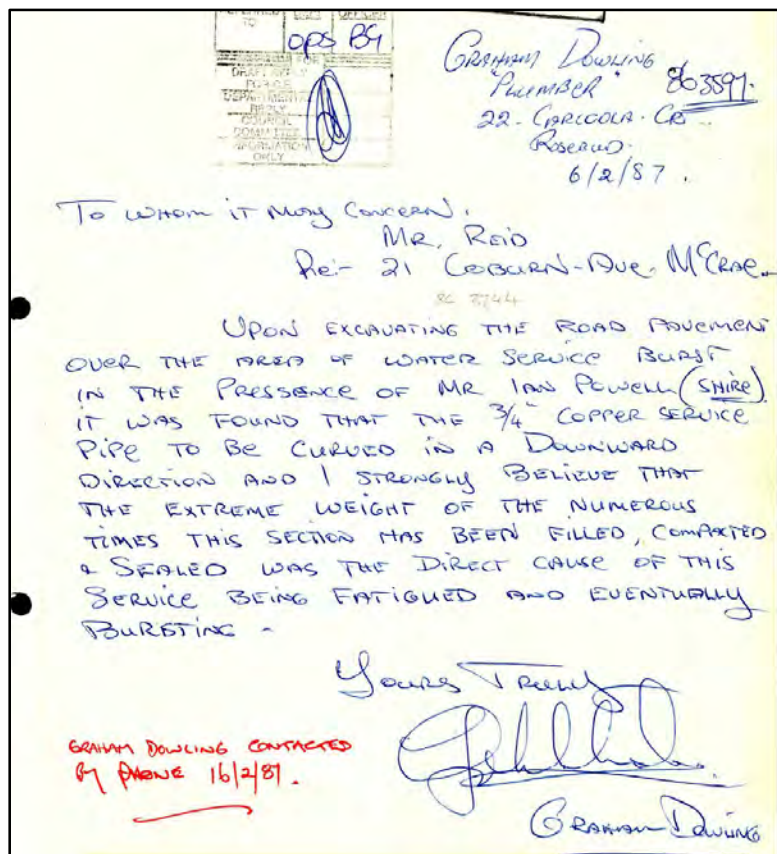 REFERRED TO
OPS BG
DRAFT REPLY
DEPARTMENTAL
REPLY
COUNCIL
COMMITTEE
INFORMATION
ONLY
GRAHAM DOWLING
"PLUMBER" 863597.
22. CARIGOLA. CR
ROSEBUD.
6/2/87.
TO WHOM IT MAY CONCERN.
MR. REID
Re:- 21 COBURN-AVE. McCRAE.
86 2744
UPON EXCAVATING THE ROAD PAVEMENT
OVER THE AREA OF WATER SERVICE BURST
IN THE PRESSENCE OF MR IAN POWELL (SHIRE)
IT WAS FOUND THAT THE 3/4" COPPER SERVICE
PIPE TO BE CURVED IN A DOWNWARD
DIRECTION AND I STRONGLY BELIEVE THAT
THE EXTREME WEIGHT OF THE NUMEROUS
TIMES THIS SECTION HAS BEEN FILLED, COMPACTED
& SEALED WAS THE DIRECT CAUSE OF THIS
SERVICE BEING FATIGUED AND EVENTUALLY
BURSTING -
Yours Truly
GRAHAM DOWLING
GRAHAM DOWLING CONTACTED
BY PHONE 16/2/87.